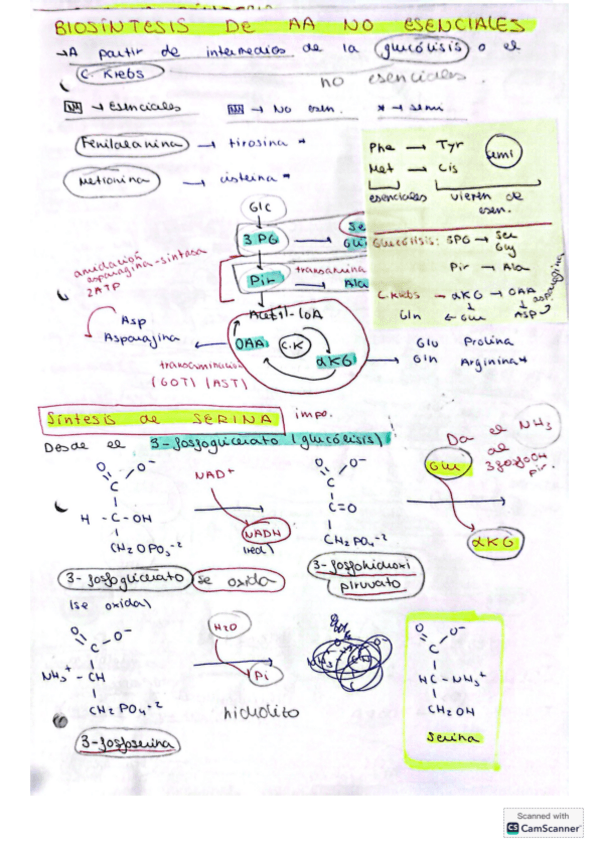 BIOSÍNTESIS DE AA NO ESENCIALES
→ A partir de intermedios de la glucólisis o el
C. Krebs
no esenciales.
→ Esenciales → No esen. * → semi
Fenilalanina → tirosina *
Metionina → cisteína *
Phe → Tyr semi
Met → Cis
esenciales vienen de
esen.
Glucólisis: 3PG → Ser
Gly
Pir → Ala
C. Krebs → αKG → OAA
Gln ← Glu ASP
asparagina
Glc
3 PG → Se
Pir transamina Ala
Acetil-CoA
OAA C.K αKG
amidación
asparagina-sintasa
2ATP
Asp
Asparagina
transaminación
(GOT) (AST)
Glu Prolina
Gln Arginina *
Síntesis de SERINA impo.
Desde el 3-fosfoglicerato (glucólisis)
Da el NH3
al
Glu
αKG
O O-
C
H - C - OH
CH2OPO3-2
NAD+
NADH
(red)
O O-
C
C=O
CH2PO4-2
3-fosfoglicerato se oxida
(se oxida)
3-fosfohidroxi
piruvato
O O-
C
NH3+ - CH
CH2PO4-2
3-fosfoserina
H2O
Pi
hidrólito
O O-
C
HC-NH3+
CH2OH
serina
Scanned with
CS CamScanner